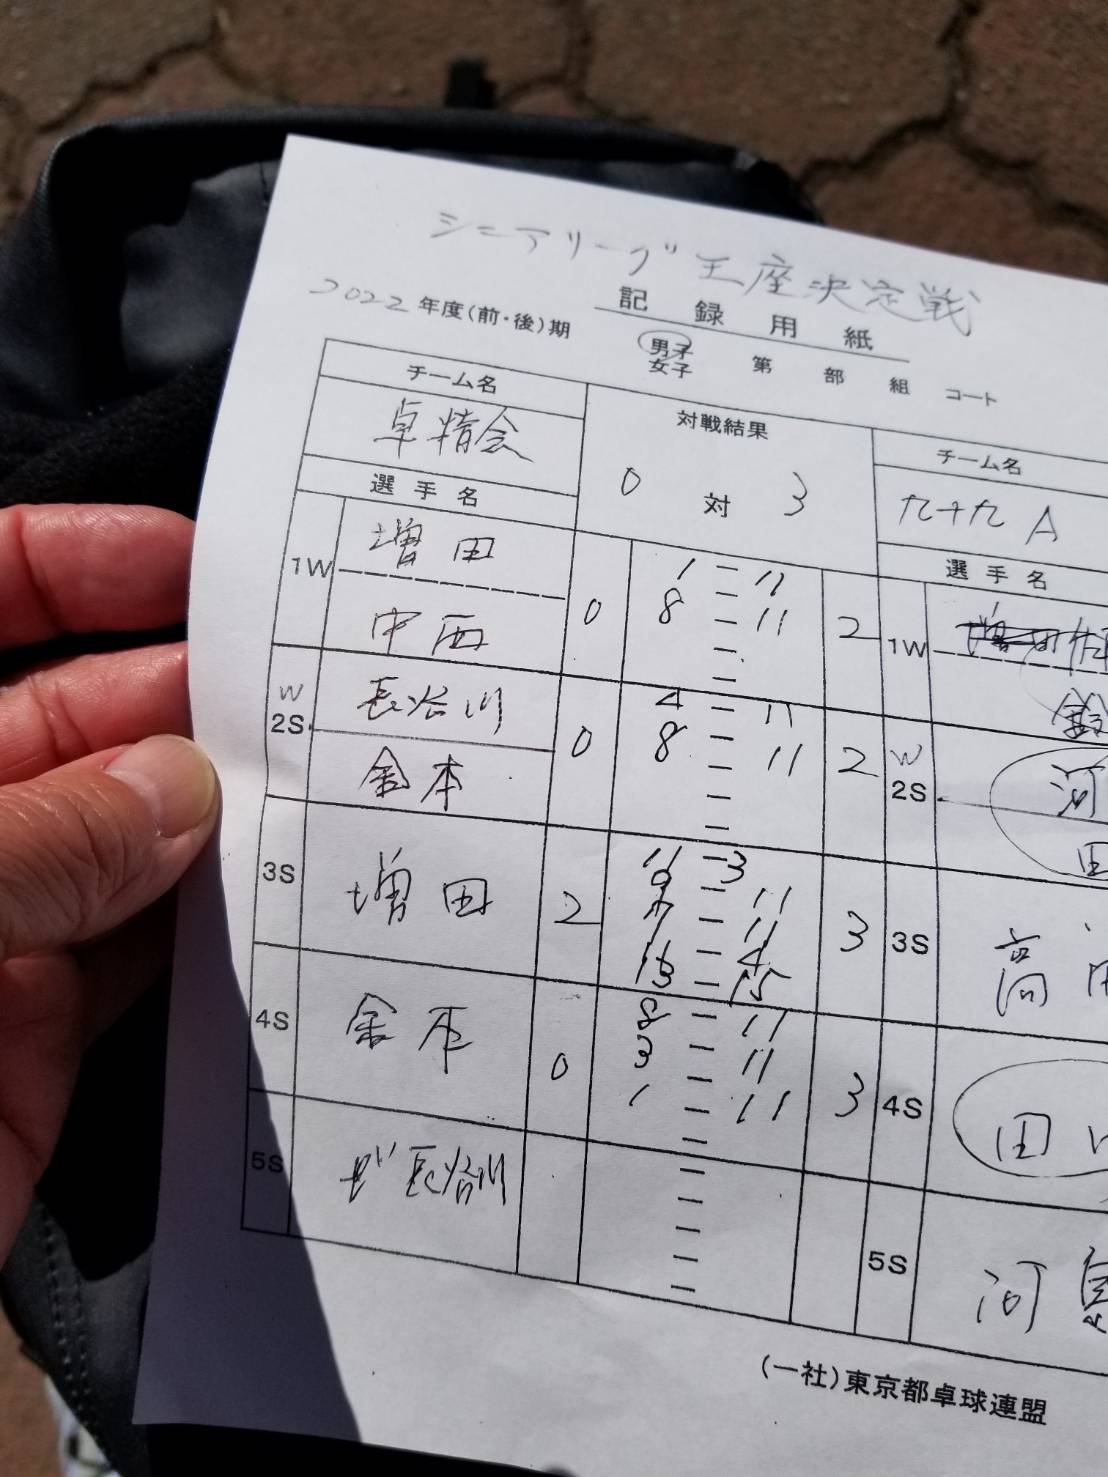 シニアリーグ王座決定戦
2022年度(前・後)期 記録用紙
男子
女子 第 部 組 コート
チーム名 対戦結果 チーム名
卓精会 0 対 3 九十九 A
選手名 選手名
1W 増田 0 1 - 11 2 1W
8 - 11
中西 -
-
W 2S 長谷川 0 4 - 11 2 W 2S 河
8 - 11
金本 -
- 田
3S 増田 2 11 - 3 3 3S 高
- 11
- 11
- 4
13 - 15
4S 金本 0 8 - 11 3 4S 田
3 - 11
1 - 11
-
5S 長谷川 - 5S 河
-
-
-
-
(一社)東京都卓球連盟